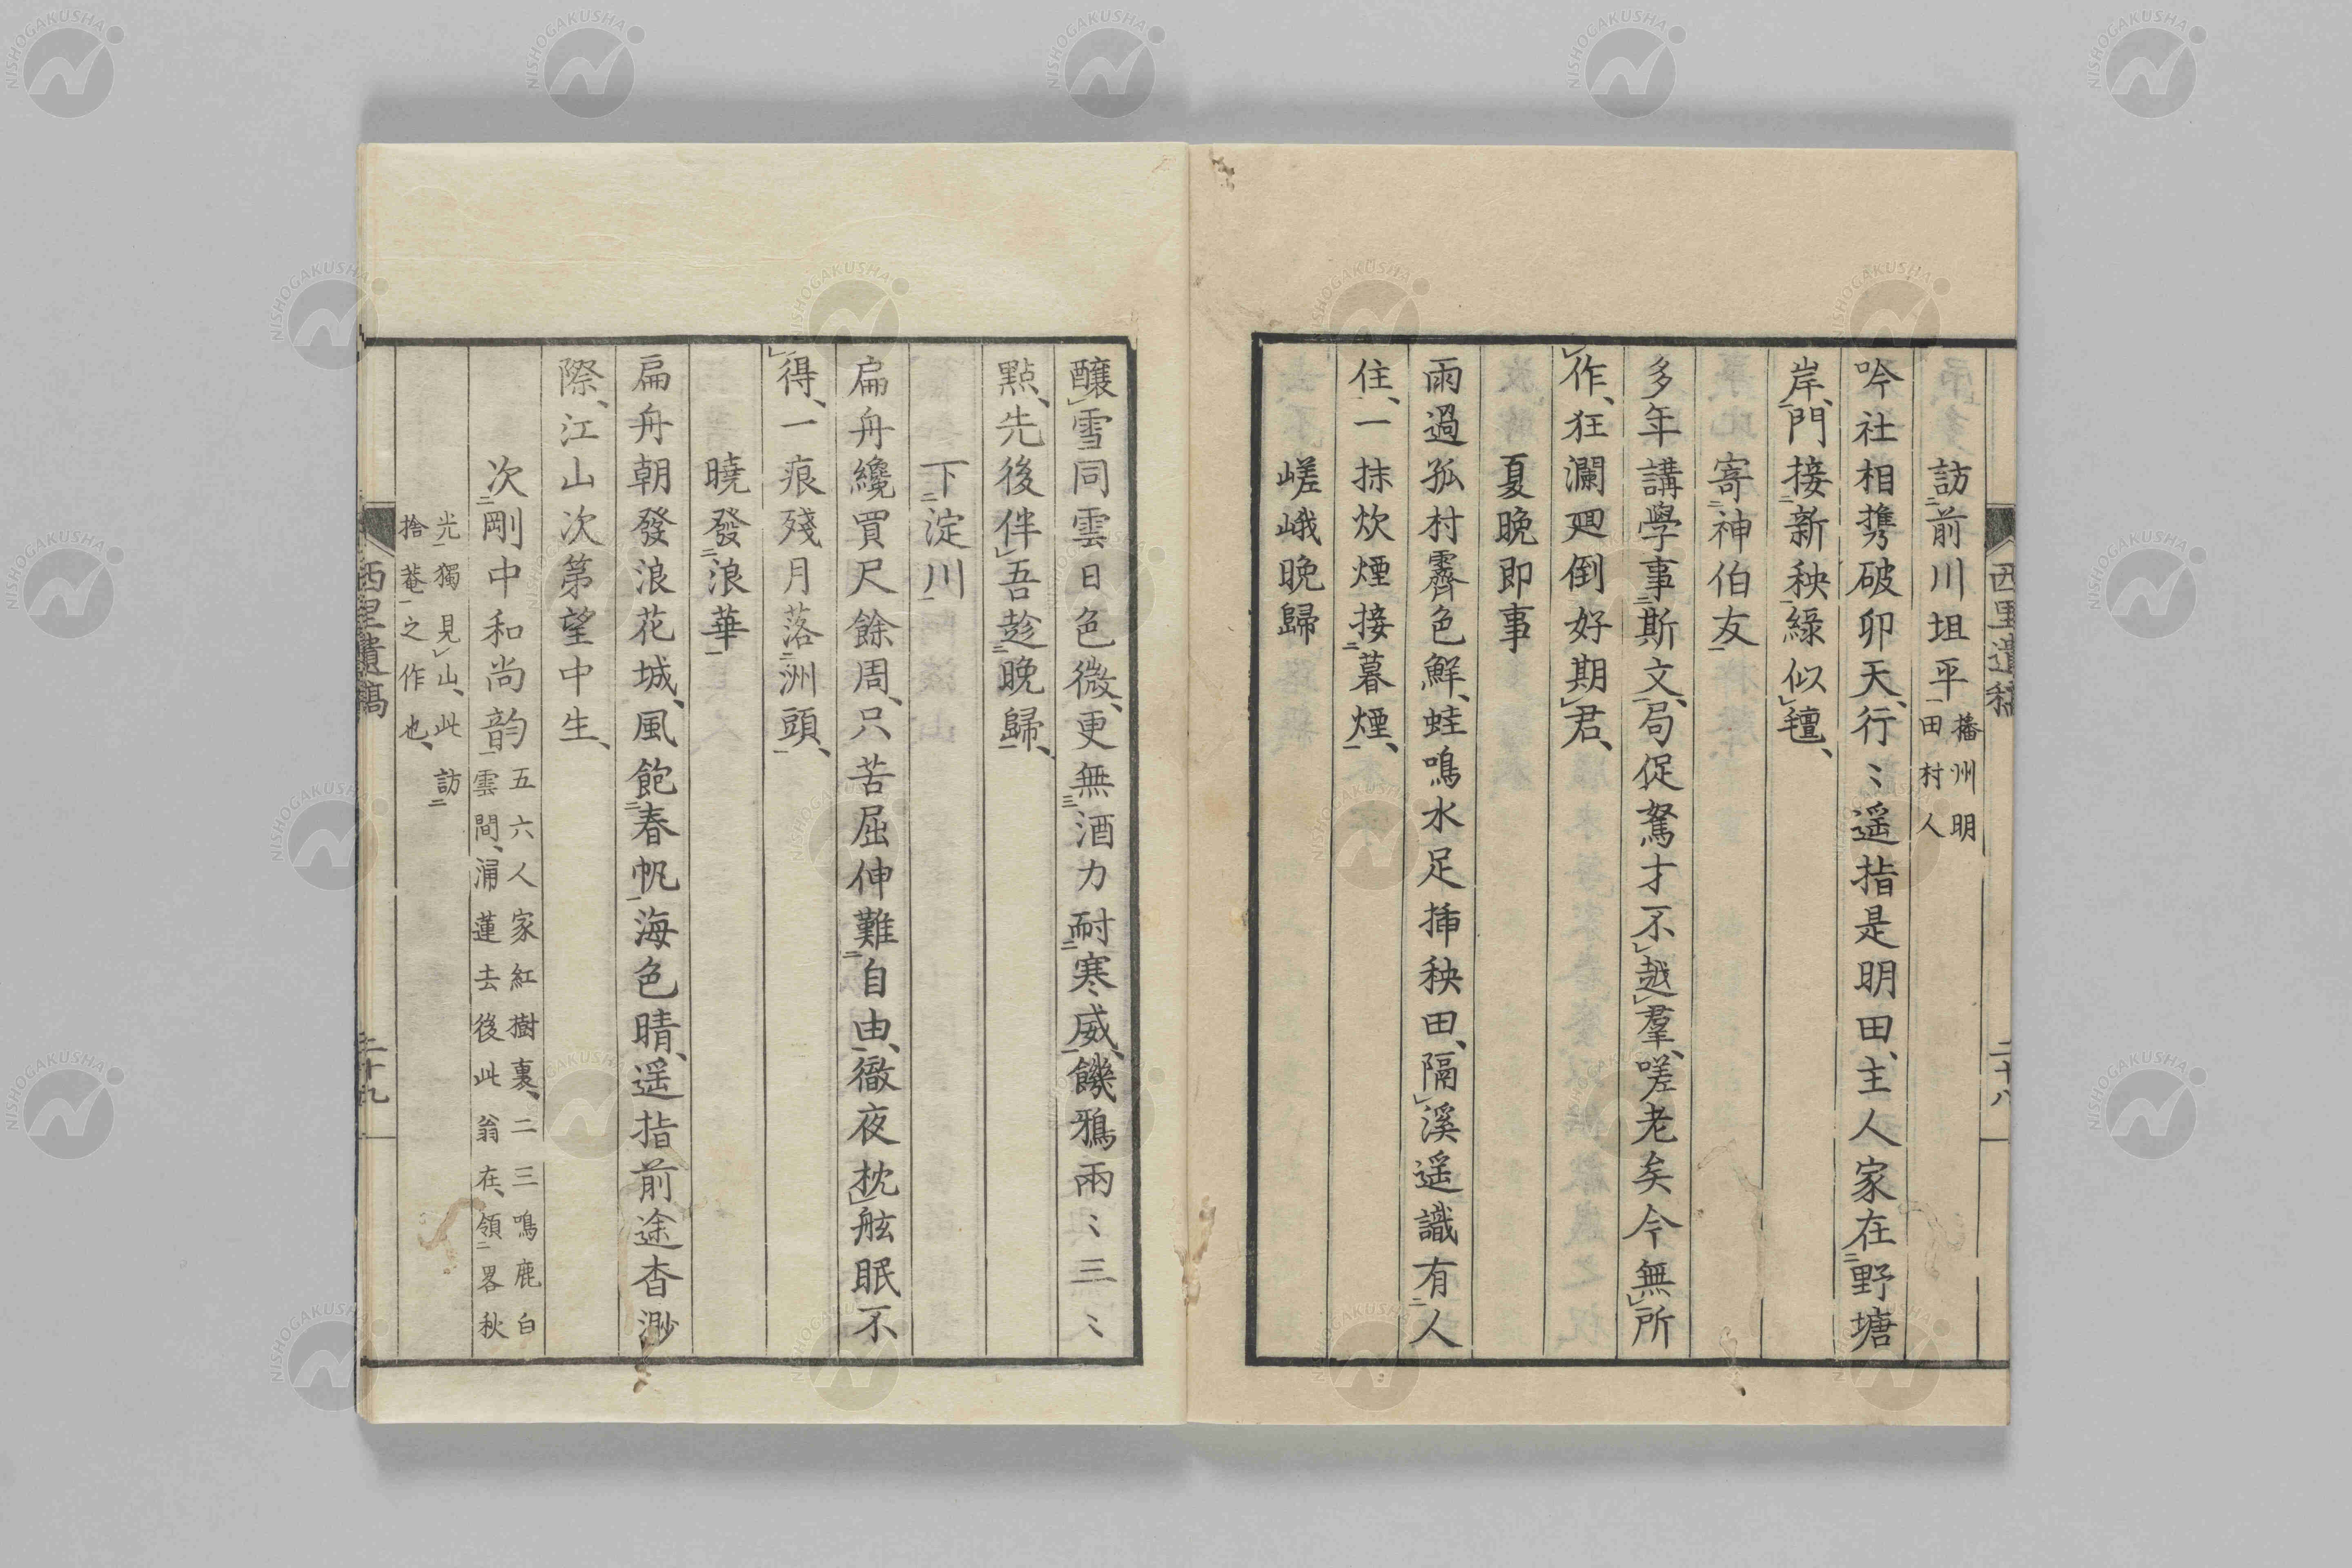 西里遺稿
二十八
訪二前川坦平一播州明田村人
吟社相携破卯天、行〻遥指是明田、主人家在二野塘
岸一、門接二新秧一綠似レ氊、
寄二神伯友一
多年講學事二斯文一、局促駑才不レ越レ羣、嗟老矣今無レ所
レ作、狂瀾廻倒好期レ君、
夏晩即事
雨過孤村霽色鮮、蛙鳴水足挿秧田、隔レ溪遥識有二人
住一、一抹炊煙接二暮煙一、
嵯峨晩歸
釀レ雪同雲日色微、更無三酒力耐二寒威一、饑鴉兩〻三〻
點、先後伴レ吾趁二晩歸一、
下二淀川一
扁舟纔買尺餘周、只苦屈伸難二自由一、徹夜枕レ舷眠不
レ得、一痕殘月落二洲頭一、
曉發二浪華一
扁舟朝發浪花城、風飽二春帆一海色晴、遥指前途杳渺
際、江山次第望中生、
次二剛中和尚韵一五六人家紅樹裏、二三鳴鹿白雲間、涌蓮去後此翁在、領二畧秋
光一獨見レ山、此訪二捨菴一之作也、
西里遺稿
二十九
NISHOGAKUSHA